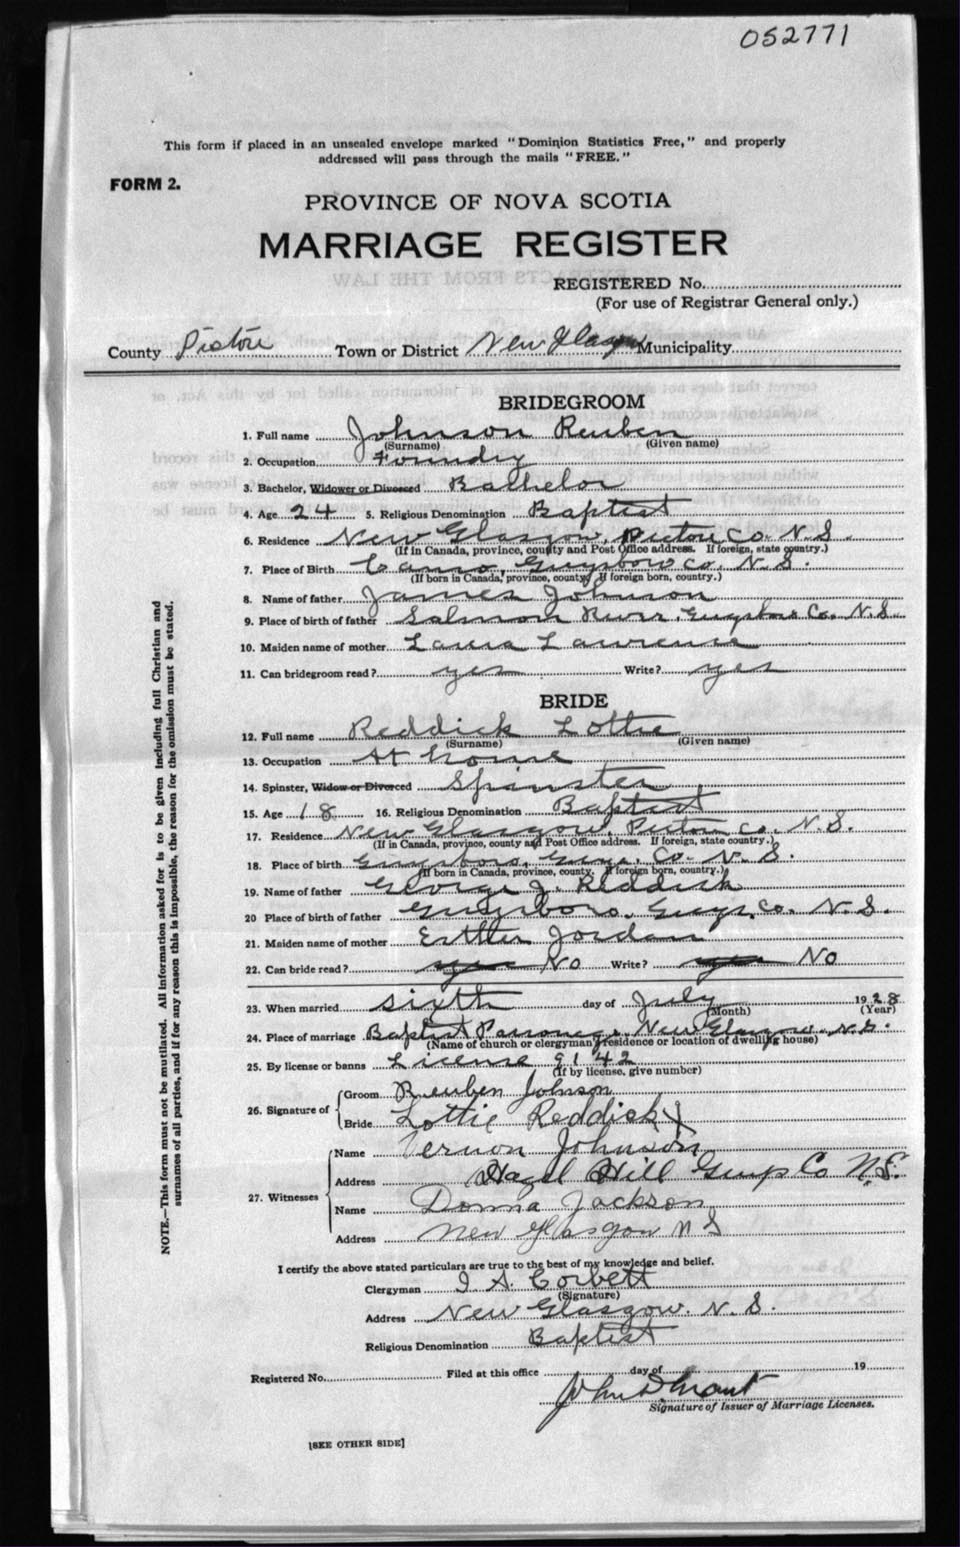 052771
This form if placed in an unsealed envelope marked "Dominion Statistics Free," and properly
addressed will pass through the mails "FREE."
FORM 2.
PROVINCE OF NOVA SCOTIA
MARRIAGE REGISTER
REGISTERED No.
(For use of Registrar General only.)
County Pictou Town or District New Glasgow Municipality
BRIDEGROOM
1. Full name Johnson Reuben
(Surname) (Given name)
2. Occupation Foundry
3. Bachelor, Widower or Divorced Bachelor
4. Age 24 5. Religious Denomination Baptist
6. Residence New Glasgow, Pictou Co. N.S.
(If in Canada, province, county and Post Office address. If foreign, state country.)
7. Place of Birth Canso, Guysboro Co. N.S.
(If born in Canada, province, county. If foreign born, country.)
8. Name of father James Johnson
9. Place of birth of father Salmon River, Guysboro Co. N.S.
10. Maiden name of mother Laura Lawrence
11. Can bridegroom read? yes Write? yes
BRIDE
12. Full name Reddick Lottie
(Surname) (Given name)
13. Occupation At home
14. Spinster, Widow or Divorced Spinster
15. Age 18 16. Religious Denomination Baptist
17. Residence New Glasgow, Pictou Co. N.S.
(If in Canada, province, county and Post Office address. If foreign, state country.)
18. Place of birth Guysboro, Guys. Co. N.S.
(If born in Canada, province, county. If foreign born, country.)
19. Name of father George J. Reddick
20 Place of birth of father Guysboro, Guys. Co. N.S.
21. Maiden name of mother Esther Jordan
22. Can bride read? yes No Write? yes No
23. When married sixth day of July 1928
(Month) (Year)
24. Place of marriage Baptist Parsonage, New Glasgow, N.S.
(Name of church or clergyman's residence or location of dwelling house)
25. By license or banns License 9142
(If by license, give number)
26. Signature of Groom Reuben Johnson
Bride Lottie Reddick X
27. Witnesses Name Vernon Johnson
Address Hazel Hill Guys Co N.S.
Name Donna Jackson
Address New Glasgow N S
I certify the above stated particulars are true to the best of my knowledge and belief.
Clergyman I. A. Corbett
(Signature)
Address New Glasgow. N. S.
Religious Denomination Baptist
Registered No. Filed at this office day of 19
John D Grant
Signature of Issuer of Marriage Licenses.
[SEE OTHER SIDE]
NOTE.—This form must not be mutilated. All information asked for is to be given including full Christian and
surnames of all parties, and if for any reason this is impossible, the reason for the omission must be stated.